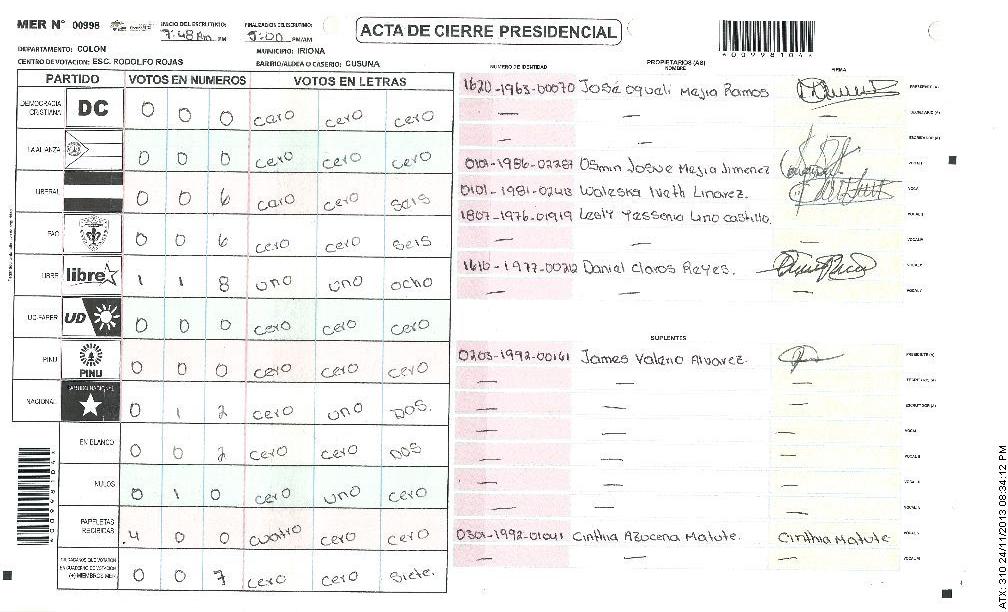 MER N° 00998
INICIO DEL ESCRUTINIO: 7:48 Am PM
FINALIZACION DEL ESCRUTINIO: 5:00 PM/AM
ACTA DE CIERRE PRESIDENCIAL
DEPARTAMENTO: COLON
MUNICIPIO: IRIONA
CENTRO DE VOTACION: ESC. RODOLFO ROJAS
BARRIO/ALDEA O CASERIO: CUSUNA
PARTIDO VOTOS EN NUMEROS VOTOS EN LETRAS
DEMOCRACIA CRISTIANA DC 0 0 0 caro cero cero
LA ALIANZA 0 0 0 cero cero cero
LIBERAL 0 0 6 caro cero seis
PAC 0 0 6 cero cero seis
LIBRE libre 1 1 8 uno uno ocho
UD-FAPER UD 0 0 0 cero cero cero
PINU PINU 0 0 0 cero cero cero
NACIONAL PARTIDO NACIONAL 0 1 2 cero uno DOS.
EN BLANCO 0 0 2 cero cero DOS
NULOS 0 1 0 cero uno cero
PAPELETAS RECIBIDAS .4 0 0 cuatro cero cero
CIUDADANOS QUE VOTARON EN CUADERNO DE VOTACION (+) MIEMBROS MER 0 0 7 cero cero siete.
NUMERO DE IDENTIDAD PROPIETARIOS (AS) NOMBRE FIRMA
1620-1963-00070 José oquali Mejia Ramos PRESIDENTE (A)
— — — SECRETARIO (A)
— ESCRUTADOR (A)
0101-1986-02287 Osmin Josue Mejia Jimenez VOCAL I
0101-1981-02413 Waleska Iveth Linarez.
1807-1976-01919 Lesly Yessenia Lino castillo.
— — — VOCAL
1610-1977-00212 Daniel Claros Reyes. VOCAL
— — — VOCAL
SUPLENTES
0203-1992-00161 James Valerio Alvarez. PRESIDENTE (A)
— — — SECRETARIO (A)
— — — ESCRUTADOR (A)
— — — VOCAL
— — — VOCAL
— — — VOCAL
— — VOCAL
0301-1992-01041 Cinthia Azucena Matute. Cinthia Matute VOCAL
— — — VOCAL
00998104
ATX: 310 24/11/2013 08:34:12 PM